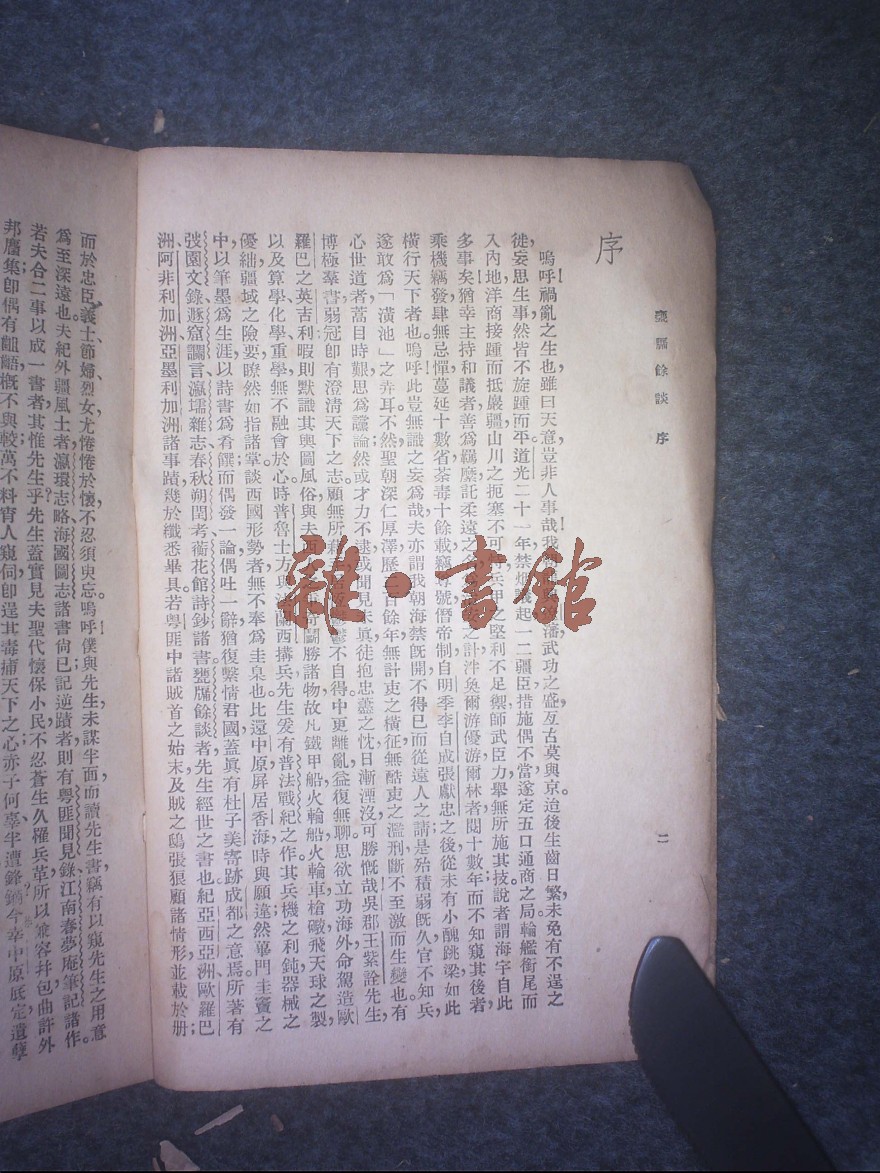 甕牖餘談 序
二
序
嗚呼禍亂之生也雖曰天意豈非人事哉我 武功之盛亙古莫與京治後生齒日繁未免有不逞之
徒妄思生事然皆不旋踵而平道光二十一年禁烟 起一二疆臣措施偶不當遂定五口通商之局輪艦銜尾而
入內地洋商接踵而抵嚴疆山川之扼塞不可 兵甲之堅利不足禦師武臣力舉無所施其技說者謂海宇自此
多事矣猶幸主持和議者善爲羈縻託柔遠之 之計泮奐爾游優游爾林者閱十數年而不知窺其後者
乘機竊發肆無忌憚蔓延十數省荼毒十餘載竊 號僭帝制自明季李自成張獻忠之後從未有小醜跳梁如此
橫行天下者也嗚呼此豈無識之妄爲哉夫亦謂我朝海禁既開不得已而從遠人之請是殆積弱既久官不知兵
遂敢爲「潢池」之弄耳不然聖朝深仁厚澤歷 百餘年無計吏之橫征無酷吏之濫刑斷不至激而生變也有
心世道者蒿目時艱思爲讜論然或才力不逮 聞見未眞徒抱忠藎之忱日漸湮沒可勝慨哉吳郡王紫詮先生
博極羣書弱冠卽有澄清天下之志顧無所 鬱不自得中更離亂益復無聊思欲立功海外命駕造歐
羅巴之英吉利暇則默識其輿圖風俗與夫 鬬勝諸物故凡鐵甲船火輪船火輪車槍礮飛天球之製
以及算學化學重學無不融會於心時普魯士方與 蘭西搆兵先生爰有普法戰紀之作其兵機之利鈍器械之
優絀疆域之險要瞭然如指諸掌談西國形勢者無不奉爲圭臬也比還中原屏居香海時與願違然蓽門圭竇之
中以筆墨爲生涯以詩書爲肴饌而偶發一論偶吐一辭猶復繫情君國蓋眞有杜子美寄跡成都之意焉所著有
弢園文錄遯窟讕言瀛壖雜志春秋朔閏考蘅花館詩鈔諸書甕牖餘談者先生經世之書也紀亞西亞洲歐羅巴
洲阿非利加洲亞墨利加洲諸事蹟幾於纖悉畢具若粵匪中諸賊首之始末及賊之鴟張狼顧諸情形並載於册
而於忠臣義士節婦烈女尤惓惓於懷不忍須臾忘嗚呼僕與先生未謀半面而讀先生書竊有以窺先生之用意
爲至深遠也夫紀外疆風土者瀛環志略海國圖志諸書尙已記逆蹟者則有粵匪聞見錄江南春夢庵筆記諸作
若夫合二事以成一書者其惟先生乎先生蓋實見夫聖代懷保小民不忍蒼生久罹兵革所以兼容幷包曲許外
邦麕集卽偶有齟齬槪不與較萬不料宵人窺伺卽逞其毒痡天下之心赤子何辜半遭鋒鏑今幸中原厎定遺孽
雜·書館